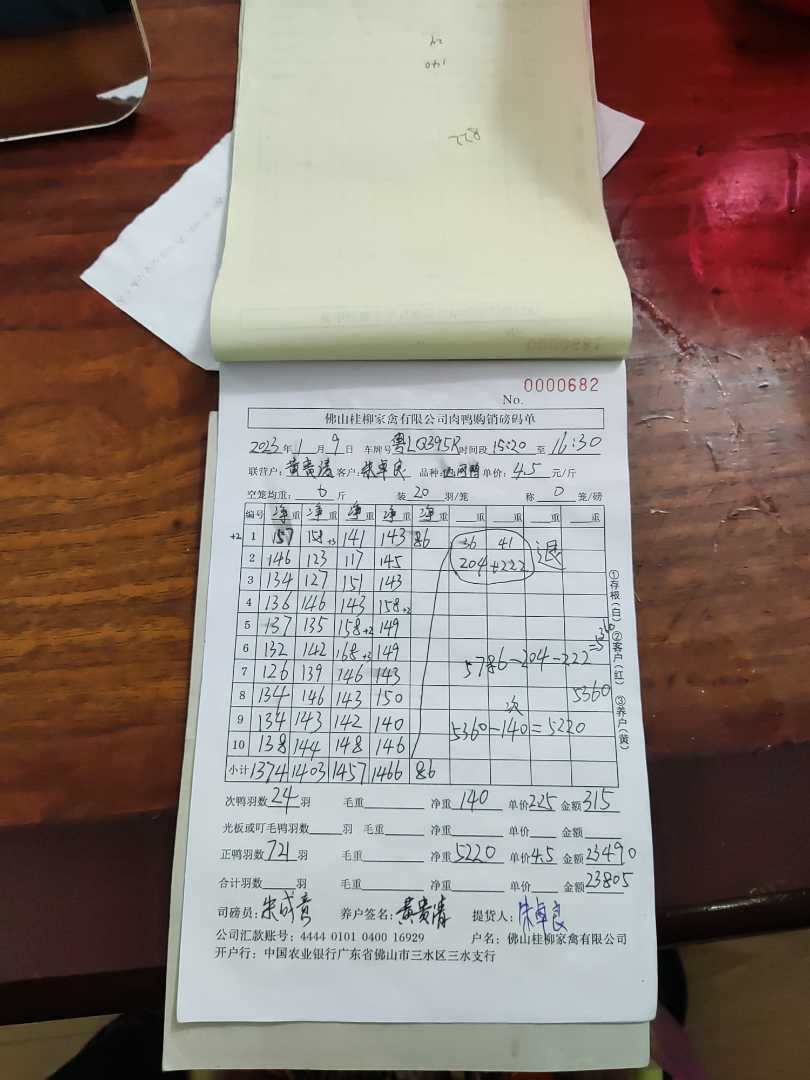 24
140
228
0000682
No.
佛山桂柳家禽有限公司肉鸭购销磅码单
2023年1月9日 车牌号粤LQ395R时间段15:20至16:30
联营户:黄贵清客户:朱卓良 品种: 单价:4.5元/斤
空笼均重:6斤 装20羽/笼 称0笼/磅
编号 净重 净重 净重 净重 净重 重 重 重 重
+2 1 157 158+3 141 143 86 36 41 退
2 146 123 117 145 204+222
3 134 127 151 143
4 136 146 143 158+2
5 137 135 158+2 149
6 132 142 168+3 149 5786-204-222=5360
7 126 139 146 143
8 134 146 143 150 5360
9 134 143 142 140 5360-140次=5220
10 138 144 148 146
小计 1374 1403 1457 1466 86
①存根(白)②客户(红)③养户(黄)
次鸭羽数24羽 毛重 净重140 单价2.25 金额315
光板或叮毛鸭羽数 羽 毛重 净重 单价 金额
正鸭羽数721羽 毛重 净重5220 单价4.5 金额23490
合计羽数 羽 毛重 净重 单价 金额23805
司磅员:朱成音 养户签名:黄贵清 提货人:朱卓良
公司汇款账号:4444 0101 0400 16929 户名:佛山桂柳家禽有限公司
开户行:中国农业银行广东省佛山市三水区三水支行